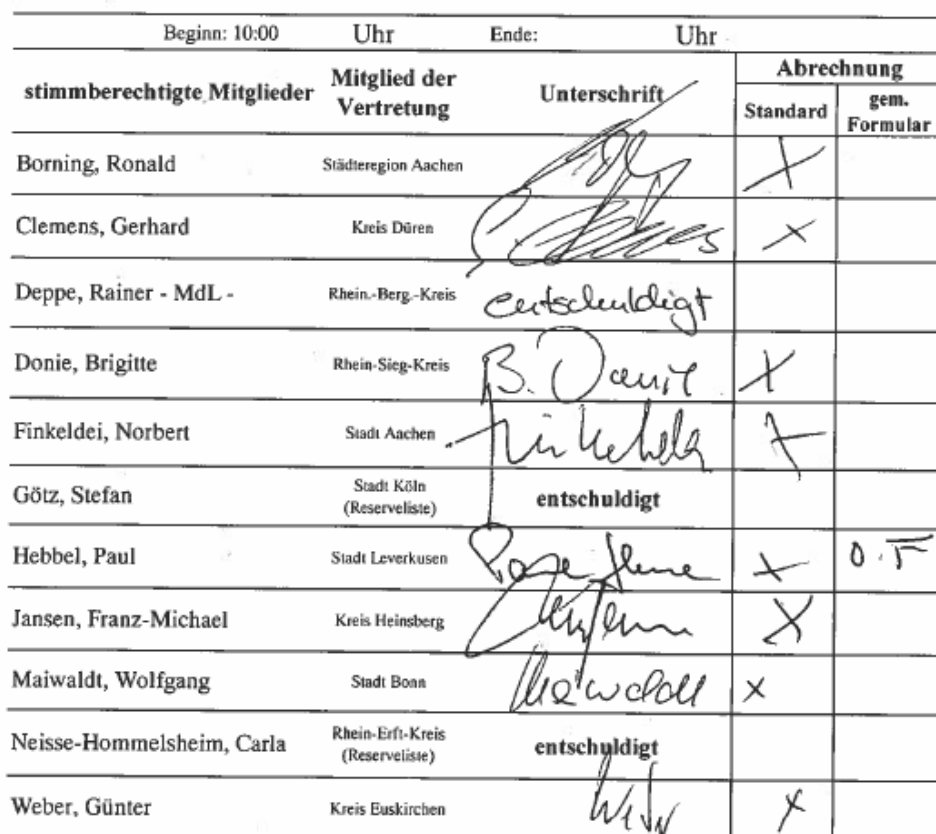 Beginn: 10:00 Uhr Ende: Uhr
stimmberechtigte Mitglieder Mitglied der Vertretung Unterschrift Abrechnung
Standard gem. Formular
Borning, Ronald Städteregion Aachen X
Clemens, Gerhard Kreis Düren X
Deppe, Rainer - MdL - Rhein.-Berg.-Kreis entschuldigt
Donie, Brigitte Rhein-Sieg-Kreis B. Donie X
Finkeldei, Norbert Stadt Aachen X
Götz, Stefan Stadt Köln (Reserveliste) entschuldigt
Hebbel, Paul Stadt Leverkusen X
Jansen, Franz-Michael Kreis Heinsberg X
Maiwaldt, Wolfgang Stadt Bonn Maiwaldt X
Neisse-Hommelsheim, Carla Rhein-Erft-Kreis (Reserveliste) entschuldigt
Weber, Günter Kreis Euskirchen Weber X